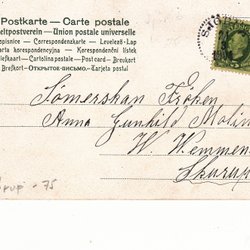 Postkarte — Carte postale
eltpostverein — Union postale universelle
opisnice — Correspondenzkarte — Levelezö-Lap
arta korespondencyjna — Korespondenční lístek
Briefkaart — Cartolina postale — Post card — Brevkort
Brefkort — Открытое письмо. — Tarjeta postal
Sömerskan Fröken
Anna Gunhild Molin
W. Wemmen
Skurup
- 75